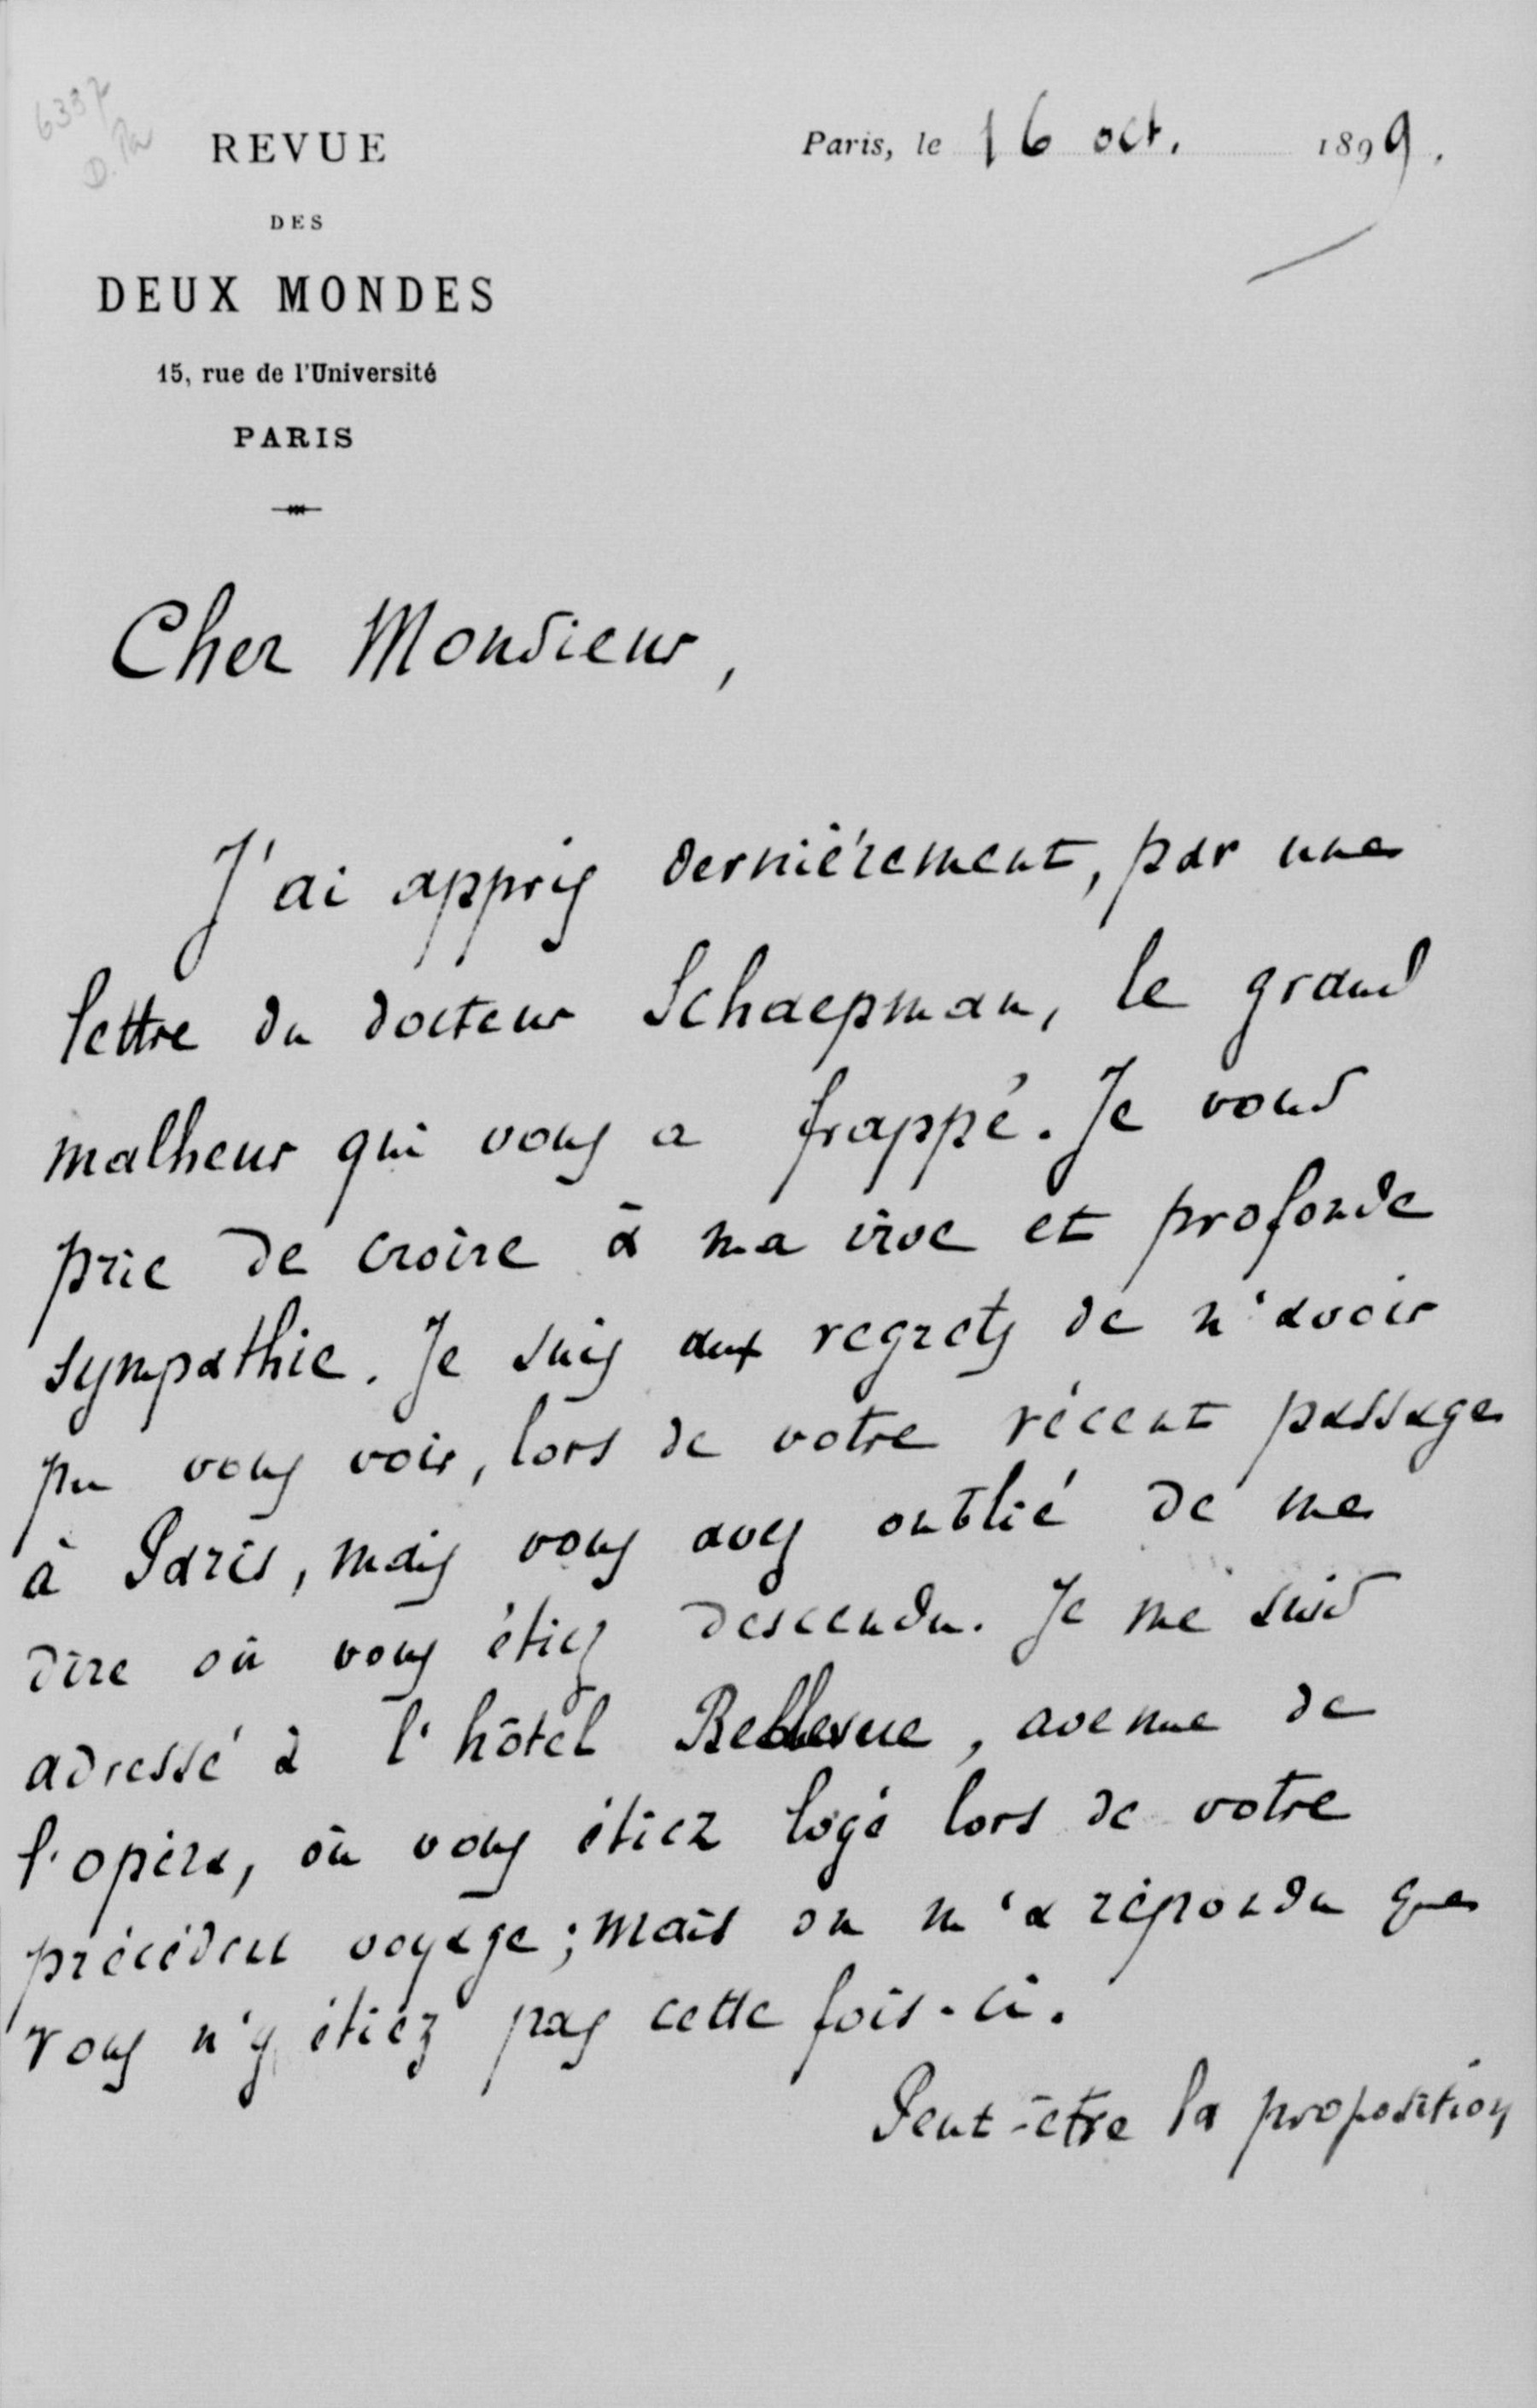 6337
REVUE
DES
DEUX MONDES
15, rue de l'Université
PARIS
Paris, le 16 oct. 1899.
Cher Monsieur,
J'ai appris dernièrement, par une
lettre du docteur Schaepman, le grand
malheur qui vous a frappé. Je vous
prie de croire à ma vive et profonde
sympathie. Je suis aux regrets de n'avoir
pu vous voir, lors de votre récent passage
à Paris, mais vous avez oublié de me
dire où vous étiez descendu. Je me suis
adressé à l'hôtel Bellevue, avenue de
l'opéra, où vous étiez logé lors de votre
précédent voyage ; mais on m'a répondu que
vous n'y étiez pas cette fois-ci.
Peut-être la proposition